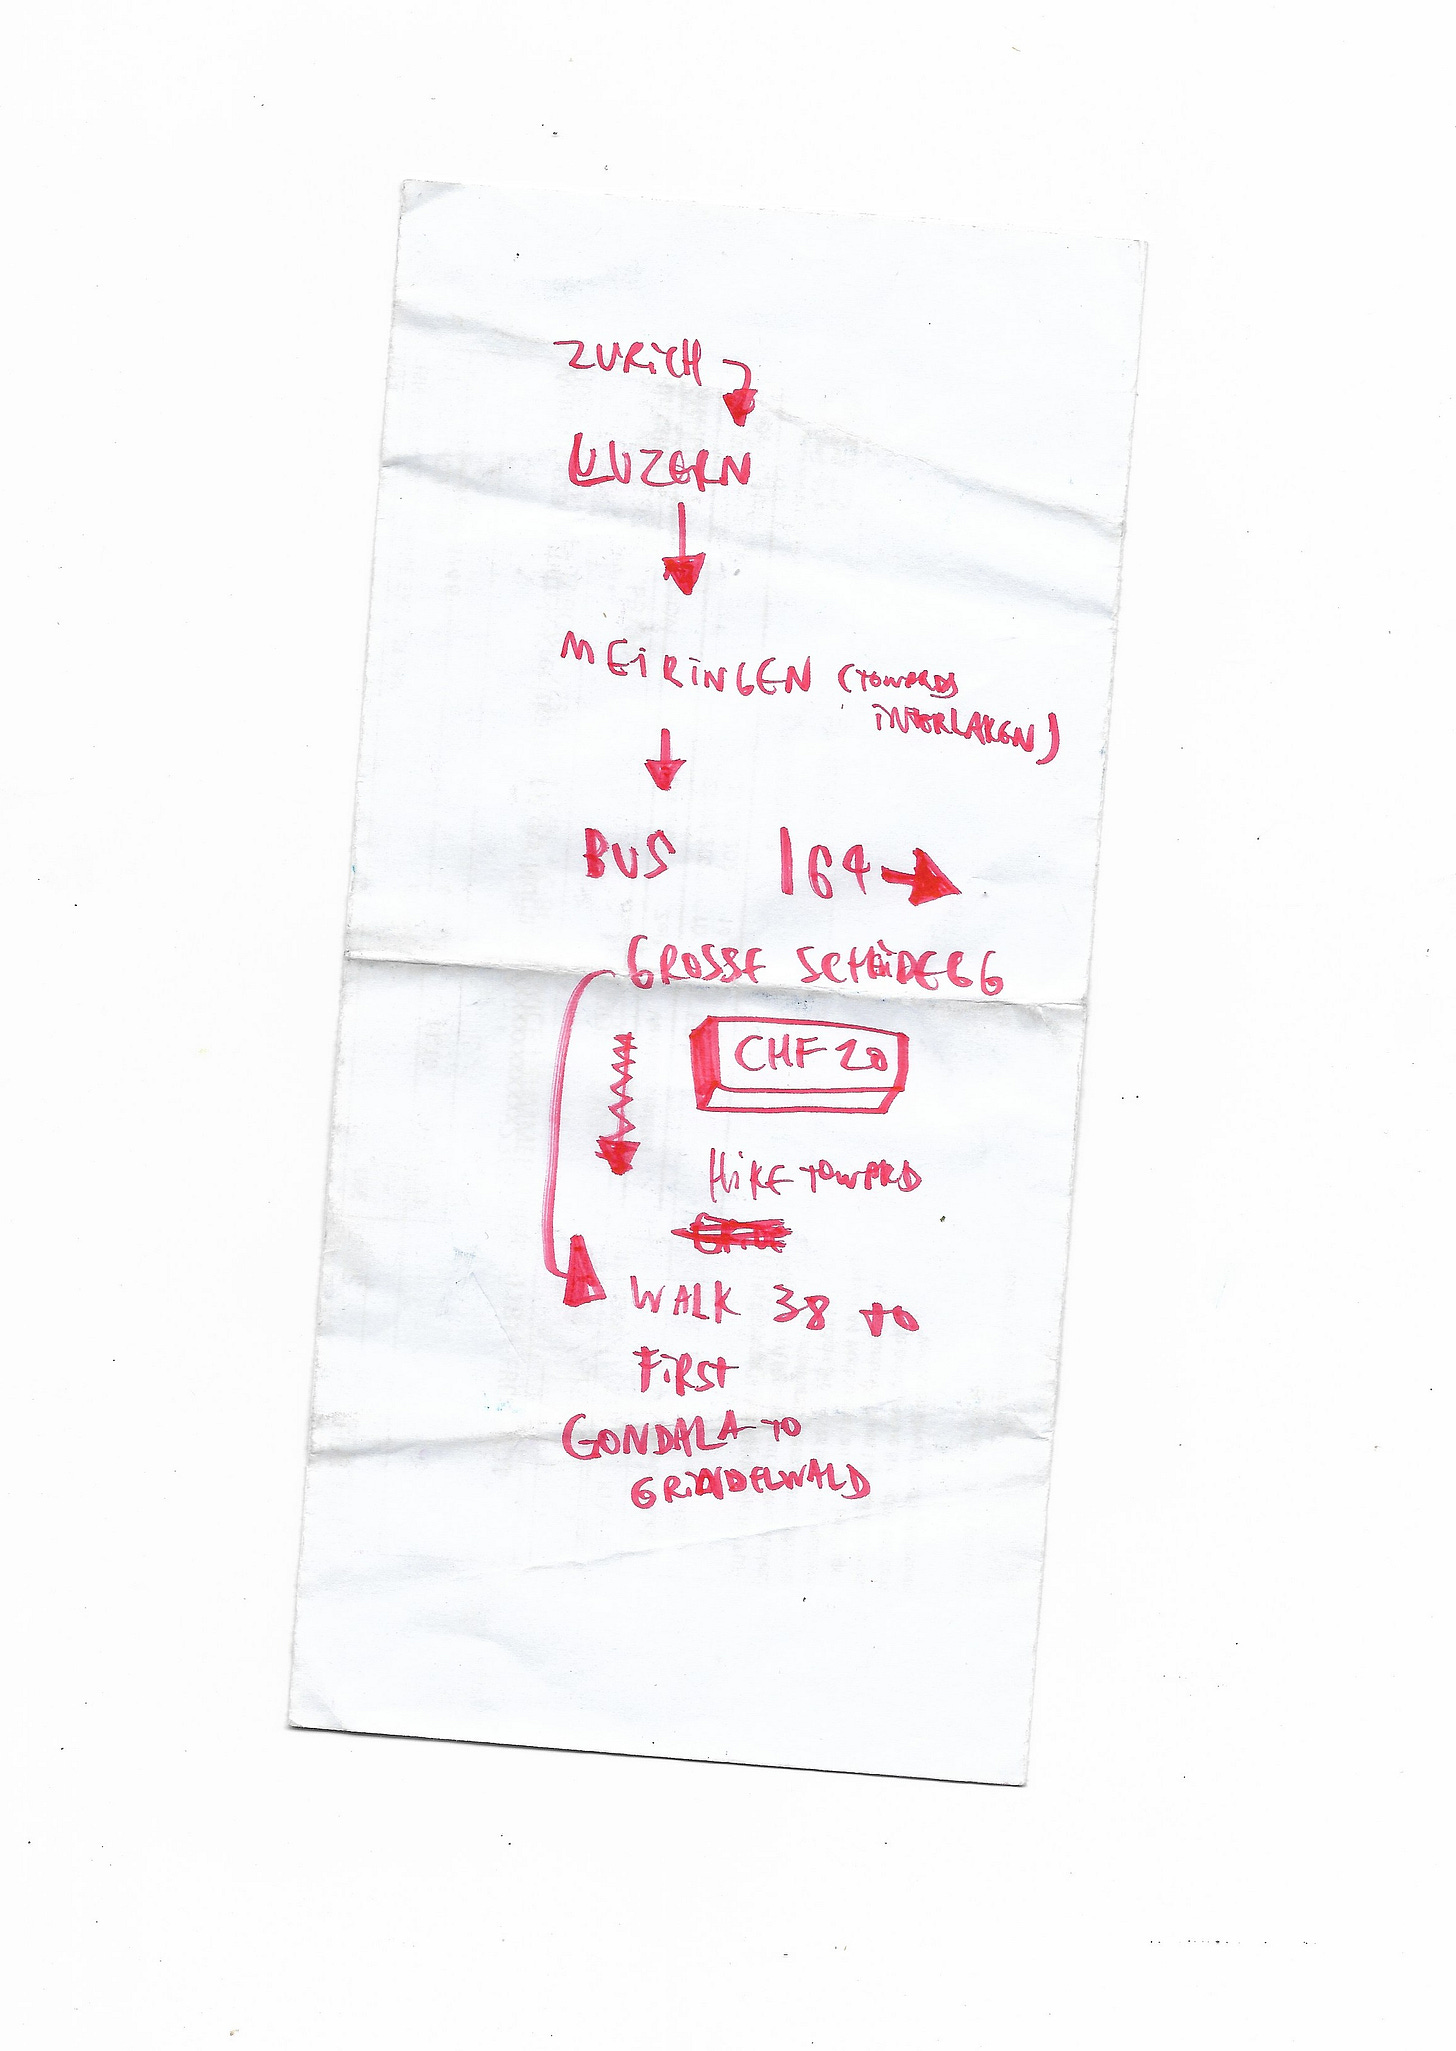 ZURiCH
LUZERN
MEiRiNGEN (TOWARDS
iNTERLAKEN)
BUS 164
GROSSE SCHEiDEGG
CHF 20
HiKE TOWARD
WALK 38 to
FiRSt
GONDALA TO
GRiNDELWALD